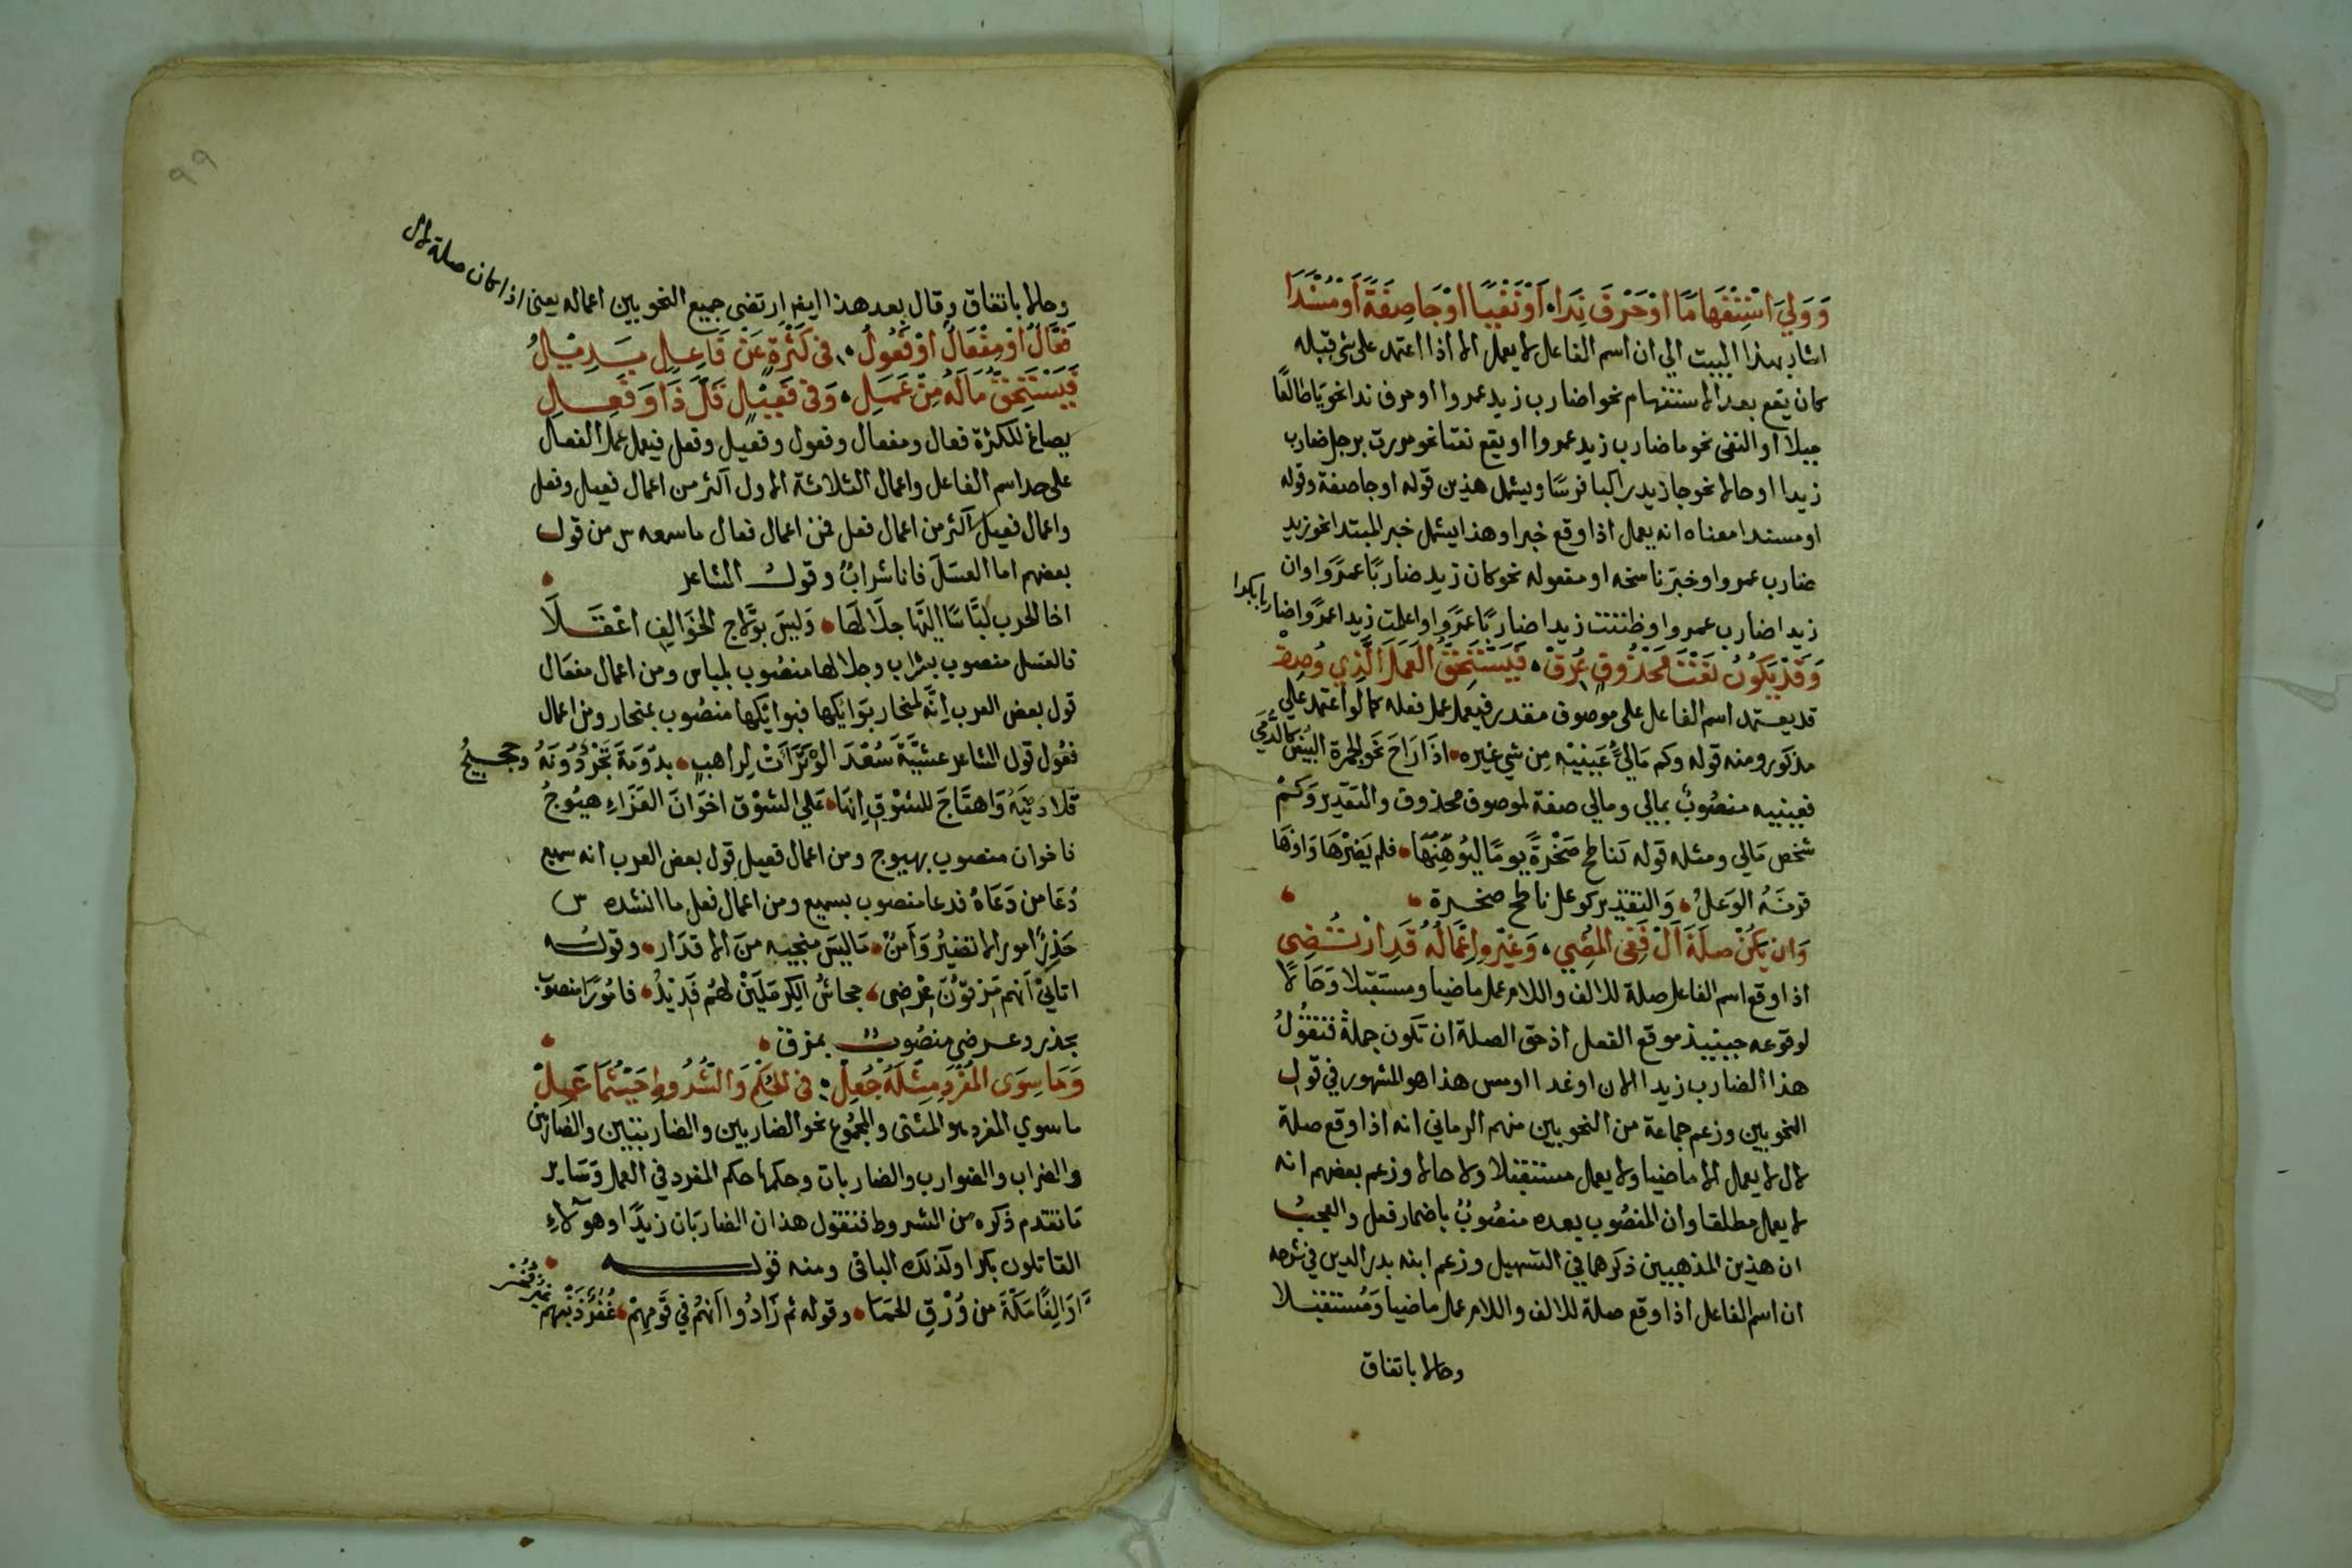 وَوَلِيَ اسْتِفْهَامًا اوْ حَرْفَ نِدَا، اَوْ نَفْيًا اوْ جَا صِفَةً أَوْ مُسْنَدَا
اشار بهذا البيت الي ان اسم الفاعل لا يعمل الا اذا اعتمد على شي قبله
كان يقع بعد الاستفهام نحو اضارب زيد عمروا او حرف ندا نحو يَا طالعًا
جبلا او النفى نحو ما ضارب زيد عمروا او يقع نعتا نحو مررت برجل ضارب
زيدا او حالا نحو جا زيد راكبا فرسًا ويشمل هذين قوله او جا صفة وقوله
او مسندا معناه انه يعمل اذا وقع خبرا وهذا يشمل خبر المبتدا نحو زيد
ضارب عمروا وخبَر ناسخه او مفعوله نحو كان زيد ضاربًا عمرًوا وان
زيدا ضارب عمروا وظننت زيدا ضاربًا عمرًوا واعلمت زيدا عمرًوا ضاربا بكرا
وَقَدْ يَكُونُ نَعْتَ مَحْذُوفٍ عُرِفْ، فَيَسْتَحِقُّ العَمَلَ الَّذِي وُصِفْ
قد يعتمد اسم الفاعل على موصوف مقدر فيعمل عمل فعله كما لو اعتمد علي
مذكور ومنه قوله وكم مَالِئٍ عَينَيْه مِن شي غيره، اذَا رَاحَ نحو الجمرة البيض كالدُّمَي
فعينيه منصُوبٌ بمالي ومالي صفة لموصوف محذوف والتقدير وَكَمْ
شخص مَالي ومثله قوله كناطح صَخْرةً يومًا ليُوْهِنَهَا، فلم يَضِرْهَا وَاوهَا
قرنَهُ الوَعلُ، وَالتقدير كوعل ناطح صخرة،
وَان يَكُنْ صلَةَ اَلْ فَفِى المُضِي، وَغَيْرِهِ اِعْمَالُهُ قَدِ ارْتُضِي
اذا وقع اسم الفاعل صلة للالف واللام عمل ماضيا ومستقبلا وَحَالًا
لوقوعه حينيذ موقع الفعل اذ حق الصلة ان تكون جملةً فتقُولُ
هذا الضارب زيدا الان او غدا او امس هذا هو المشهور في قول
النحويين وزعم جماعة من النحويين منهم الرماني انه اذا وقع صلة
لال لا يعمل الا ماضيا ولا يعمل مستقبلا ولا حالا وزعم بعضهم انه
لا يعمل مطلقا وان المنصُوب بعده منصُوبٌ باضمار فعل والعجبُ
ان هذين المذهبين ذكرهما في التسهيل وزعم ابنه بدر الدين في شرحه
ان اسم الفاعل اذا وقع صلة للالف واللام عمل ماضيا وَمُستقبلا
وحالا باتفاق
٩٩
وحالا باتفاق وقال بعد هذا ايضا ارتضى جميع النحويين اعماله يعنى اذا كان صلة لال
فَعَّالٌ اوْ مِفْعَالٌ اوْ فَعُولُ، فى كَثْرَةٍ عَنْ فَاعِلٍ بَدِيْلُ
فَيَسْتَحِقُّ مَا لَهُ مِنْ عَمَلِ، وَفى فَعِيْلٍ قَلَّ ذَا وَفَعِلِ
يصاغ للكثرة فعال ومفعال وفعول وفعيل وفعل فيعمل عمل الفعل
على حد اسم الفاعل واعمال الثلاثة الاول اكثر من اعمال فعيل وفعل
واعمال فعيل اكثر من اعمال فعل فمن اعمال فعال ما سمعه س من قول
بعضهم اما العسَلَ فانا شرابٌ وقول الشاعر،
اخا الحرب لبَّاسًا اليْهَا جلَالهَا، وَليسَ بوَلَّاج الخَوَالِفِ اعْقَلَا
فالعسل منصوب بشراب وجلالها منصُوب بلباس ومن اعمال مفعَال
قول بعض العرب اِنَّه لمنحار بوَايكها فبوايكها منصُوب بمنحار ومن اعمال
فعُول قول الشاعر عشيَّةَ سُعْدَى لوْ تَرَاَتْ لِراهبٍ، بدَوْمَةَ تَجْرٌ دُوْنَهُ وحجيجُ
قلا دِيْنَهُ وَاهتَاجَ للشوْقِ اِنهَا، عَلي الشوْق اخوَانَ العَزَاءِ هيُوجُ
فاخوان منصوب بهيوج ومن اعمال فعيل قول بعض العرب انه سميع
دُعَا من دَعَاهُ فدعا منصوب بسميع ومن اعمال فعل ما انشده س
حَذِرٌ امورا لا تضيرُ وَآمنٌ، مَا ليسَ منجيه منَ الاقدَار، وقوله
اتاني اَنهم مَزِقوْنَ عِرْضِي، جحاشُ الكِرمَلَيْنِ لهُم فَدِيْدُ، فامُورًا منصوب
بحذر وعرضي منصُوبٌ بمزق،
وَمَا سِوَى المُفْرَدِ مِثْلَهُ جُعِلْ، فى الحُكْمِ وَالشُّرُوطِ حَيْثُمَا عَمِلْ
ما سوي المفرد هو المثنى والمجمُوع نحو الضاربين والضاربتين والضاربين
والضراب والضوارب والضاربات وحكمها حكم المفرد في العمل وَسَاير
مَا تقدم ذكره من الشروط فتقول هذان الضاربَان زيدًا وهولاءِ
القاتلون بكرا وكذلك الباقى ومنه قوله،
اوَالِفًا مَكّةَ من وُرْقِ الحَمَا، وقوله ثم زَادُوا اَنهُمْ في قَومِهِمْ، غُفُرٌ ذَنْبَهُمْ غَيْرُ فُخُرْ